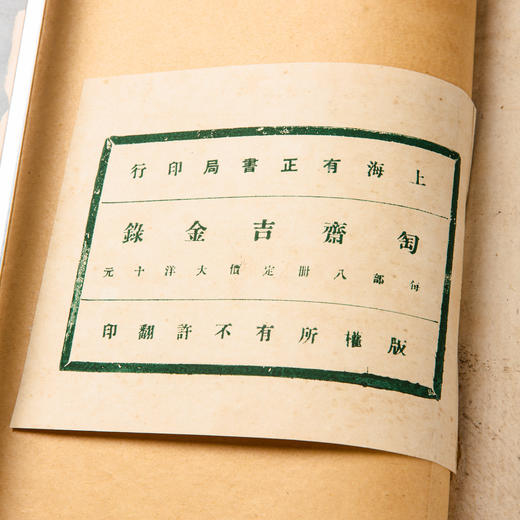 上海有正書局印行
匋齋吉金錄
每部八冊定價大洋十元
版權所有不許翻印